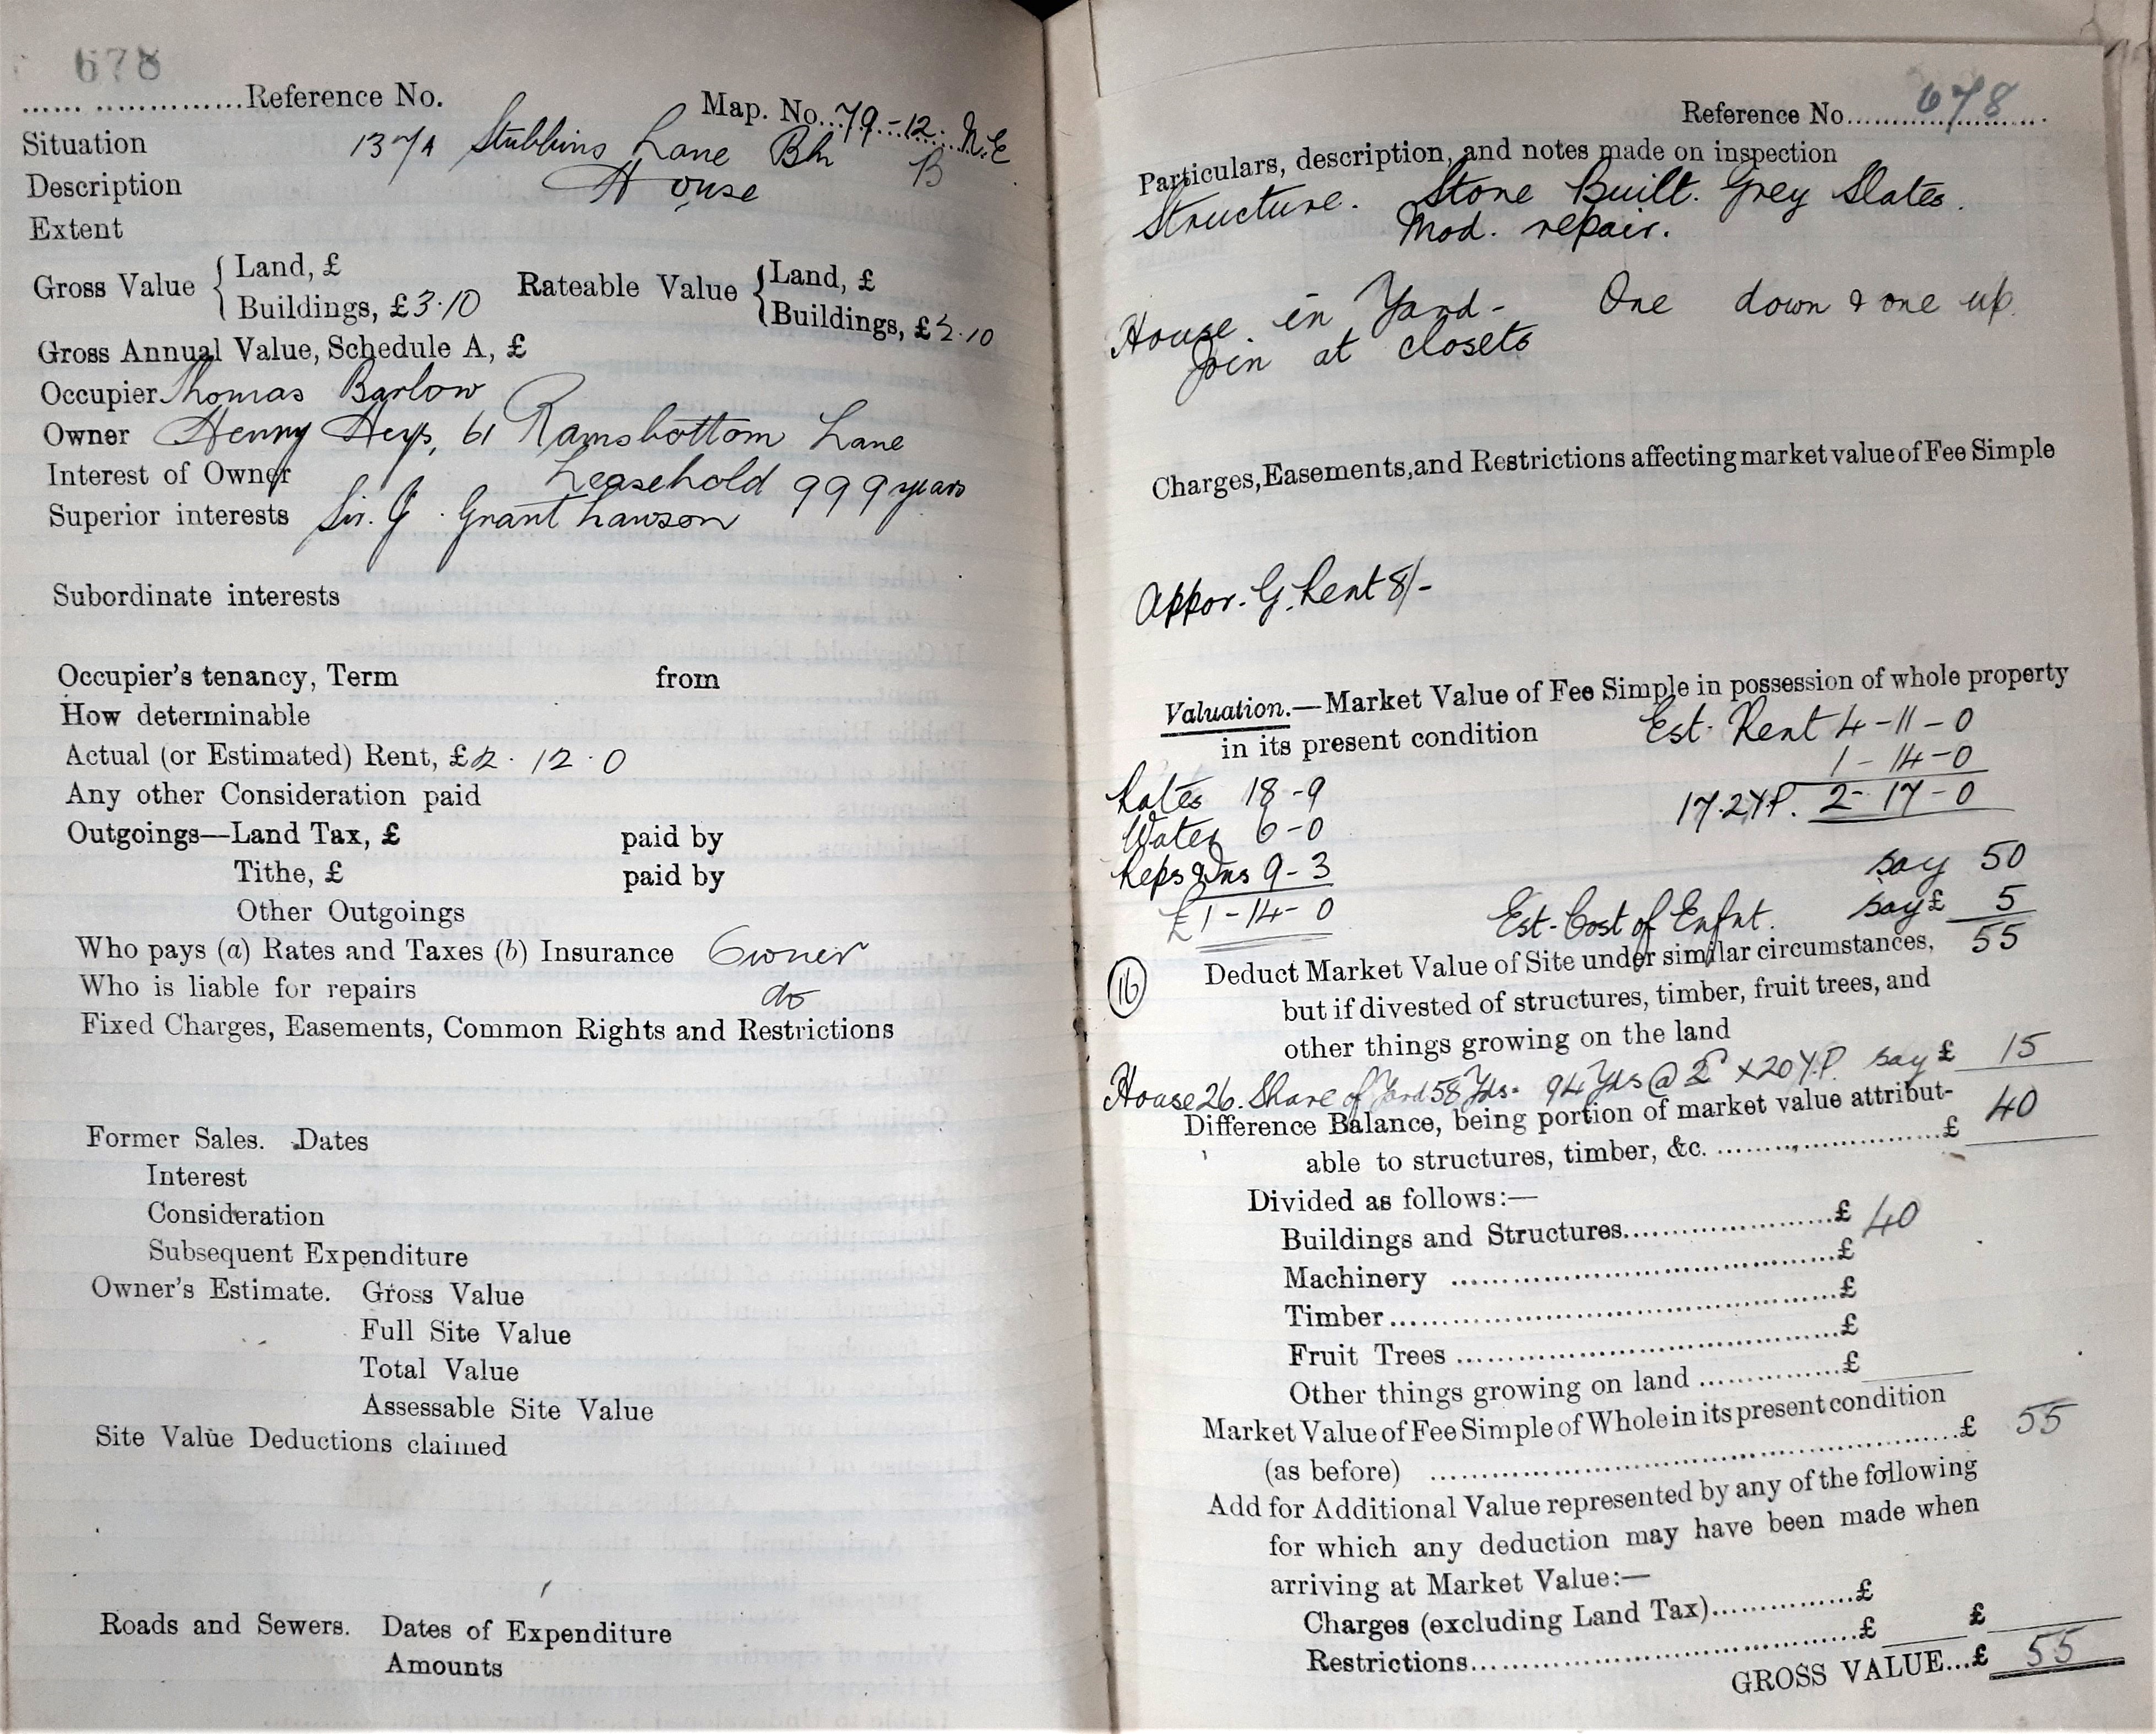 678
...... ..............Reference No. Map. No...79.-12. N.E
Situation 137A Stubbins Lane Bh B
Description House
Extent
Gross Value { Land, £ Rateable Value { Land, £
Buildings, £3.10 Buildings, £3.10
Gross Annual Value, Schedule A, £
Occupier Thomas Barlow
Owner Henry Heys, 61 Ramsbottom Lane
Interest of Owner Leasehold 999 years
Superior interests Sir. J. Grant Lawson
Subordinate interests
Occupier's tenancy, Term from
How determinable
Actual (or Estimated) Rent, £2.12.0
Any other Consideration paid
Outgoings—Land Tax, £ paid by
Tithe, £ paid by
Other Outgoings
Who pays (a) Rates and Taxes (b) Insurance Owner
Who is liable for repairs do
Fixed Charges, Easements, Common Rights and Restrictions
Former Sales. Dates
Interest
Consideration
Subsequent Expenditure
Owner's Estimate. Gross Value
Full Site Value
Total Value
Assessable Site Value
Site Value Deductions claimed
Roads and Sewers. Dates of Expenditure
Amounts
Reference No. 678
Particulars, description, and notes made on inspection
Structure. Stone Built. Grey Slates.
Mod. repair.
House in Yard - One down & one up.
Join at closets
Charges, Easements, and Restrictions affecting market value of Fee Simple
Appor. G. Rent 8/-
Valuation.—Market Value of Fee Simple in possession of whole property
in its present condition Est. Rent 4-11-0
1-14-0
Rates 18-9 17.2 Y.P. 2-17-0
Water 6-0
Reps & Ins 9-3 say 50
£1-14-0 Est. Cost of Enfnt. say £ 5
55
(16) Deduct Market Value of Site under similar circumstances,
but if divested of structures, timber, fruit trees, and
other things growing on the land
House 26. Share of Yard 58 Yds. 94 Yds @ 2d x 20 Y.P. say £ 15
Difference Balance, being portion of market value attribut-
able to structures, timber, &c. ......................£ 40
Divided as follows:—
Buildings and Structures......................£ 40
Machinery ......................£
Timber......................£
Fruit Trees ......................£
Other things growing on land ................£
Market Value of Fee Simple of Whole in its present condition
(as before) ......................£ 55
Add for Additional Value represented by any of the following
for which any deduction may have been made when
arriving at Market Value:—
Charges (excluding Land Tax)................£
Restrictions......................£ £
GROSS VALUE...£ 55